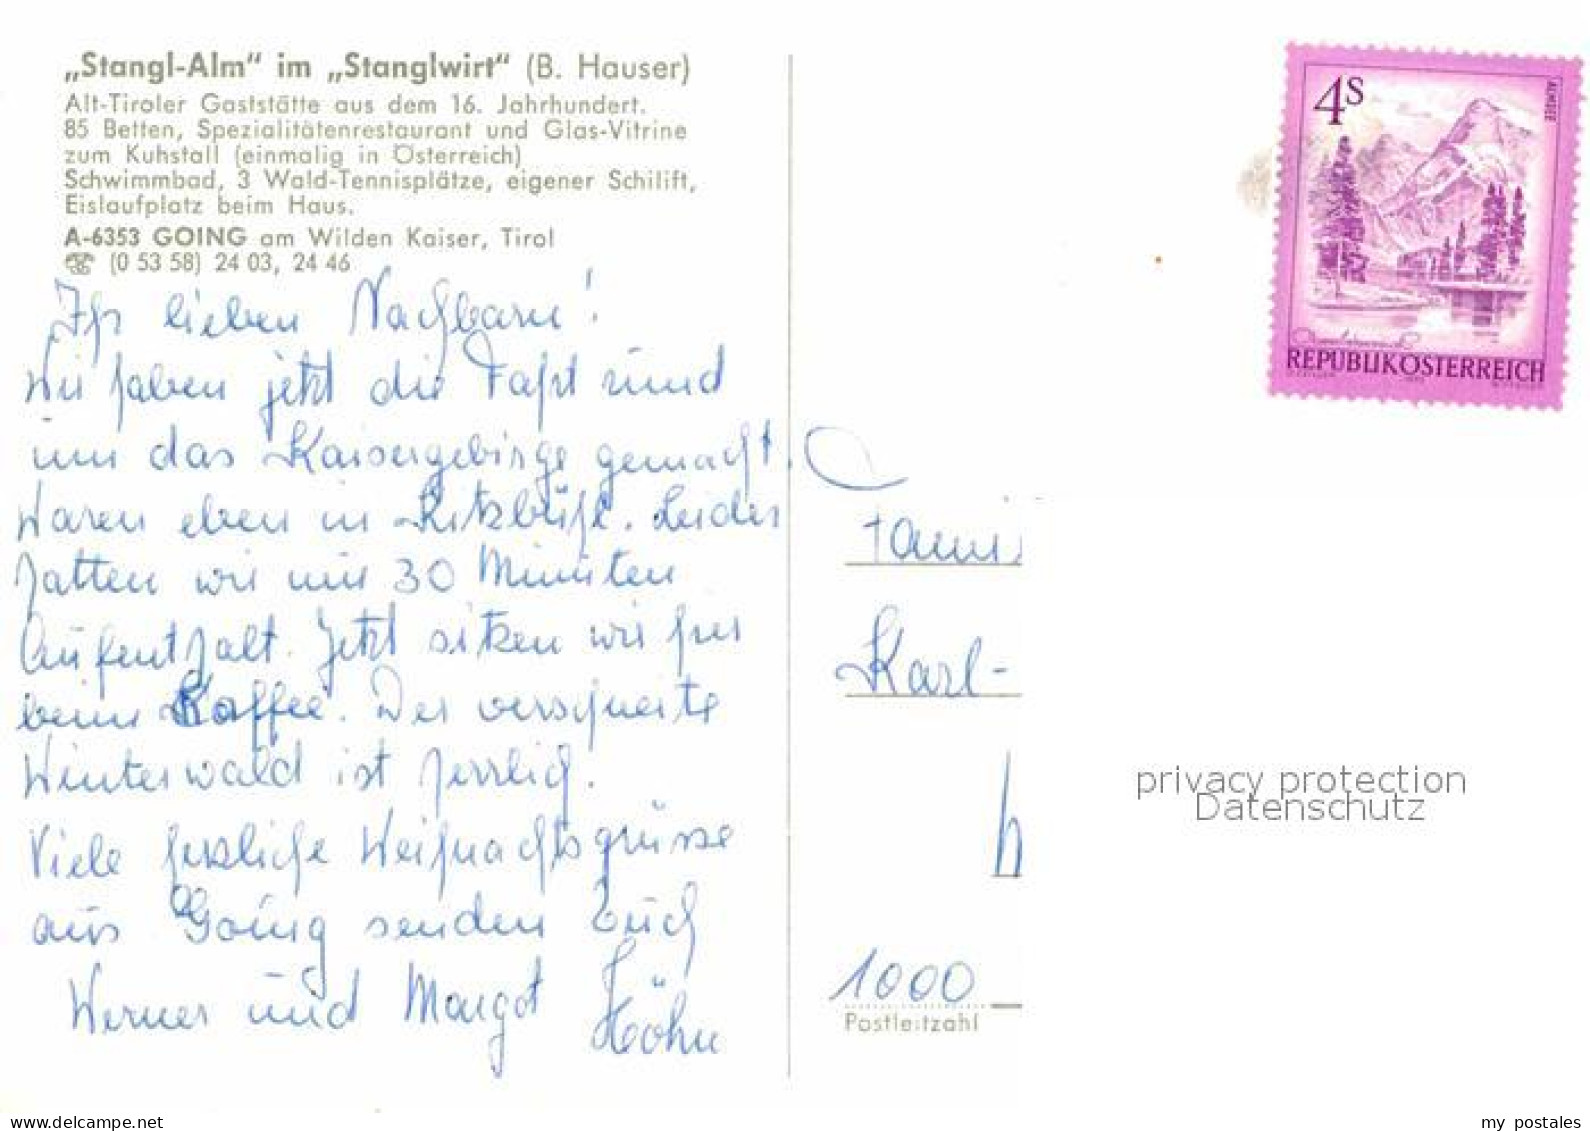 „Stangl-Alm" im „Stanglwirt" (B. Hauser)
Alt-Tiroler Gaststätte aus dem 16. Jahrhundert.
85 Betten, Spezialitätenrestaurant und Glas-Vitrine
zum Kuhstall (einmalig in Österreich)
Schwimmbad, 3 Wald-Tennisplätze, eigener Schilift,
Eislaufplatz beim Haus.
A-6353 GOING am Wilden Kaiser, Tirol
☎ (0 53 58) 24 03, 24 46
Ihr lieben Nachbarn!
Wir haben jetzt die Fahrt rund
um das Kaisergebirge gemacht.
Waren eben in Kitzbühl. Leider
hatten wir nur 30 Minuten
Aufenthalt. Jetzt sitzen wir hier
beim Kaffee. Der verschneite
Winterwald ist herrlich.
Viele herzliche Weihnachtsgrüsse
aus Going senden Euch
Werner und Margot Höhn
4S
ALMSEE
REPUBLIK ÖSTERREICH
Fami
Karl-
1000
Postleitzahl
privacy protection
Datenschutz
www.delcampe.net
my_postales